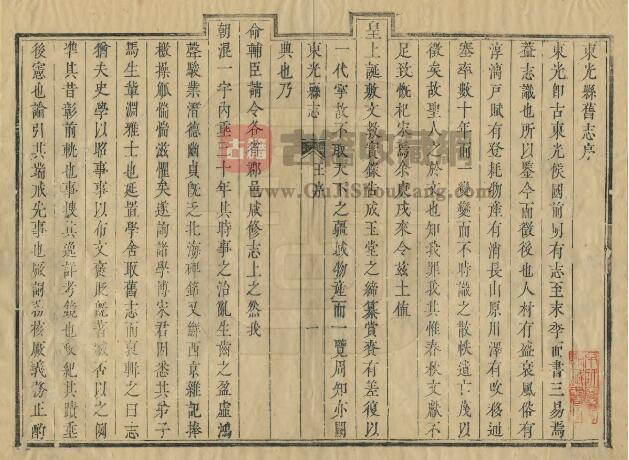 東光縣舊志序
東光卽古東光侯國前明有志至末季而書三易焉
蓋志識也所以鑒今而徵後也人材有盛衰風俗有
淳漓戶賦有登耗物產有消長山原川澤有改移通
塞率數十年而一變變而不時識之散軼遺亡茂以
徵矣故聖人之於文也知我罪我其惟春秋文獻不
足致慨杞宋焉余庚戌來令茲土值
皇上誕敷文教實錄告成玉堂之締纂賞賚有差復以
一代寧故不取天下之疆域物產而一覽周知亦闕
東光縣志 王序 一
典也乃
命輔臣請令各省郡邑咸修志上之然我
朝混一宇內垂三十年其時事之治亂生齒之盈虛鴻
聲駿業潛德幽貞旣乏北海裨錦又鮮西京雜記捧
檄操觚惴惴滋懼矣遂詢諸學博宋君因悉其弟子
馬生輩淵雅士也延置學舍取舊志而裒輯之曰志
猶夫史學以昭事事以布文褒貶旣著臧否以之闕
準其昔彰前軌也事搜其逸詳考鏡也政紀其蹟垂
後憲也論引其端戒先事也縱詞務核厥義務止酌
古籍收藏網
www.GuJiShouCang.com